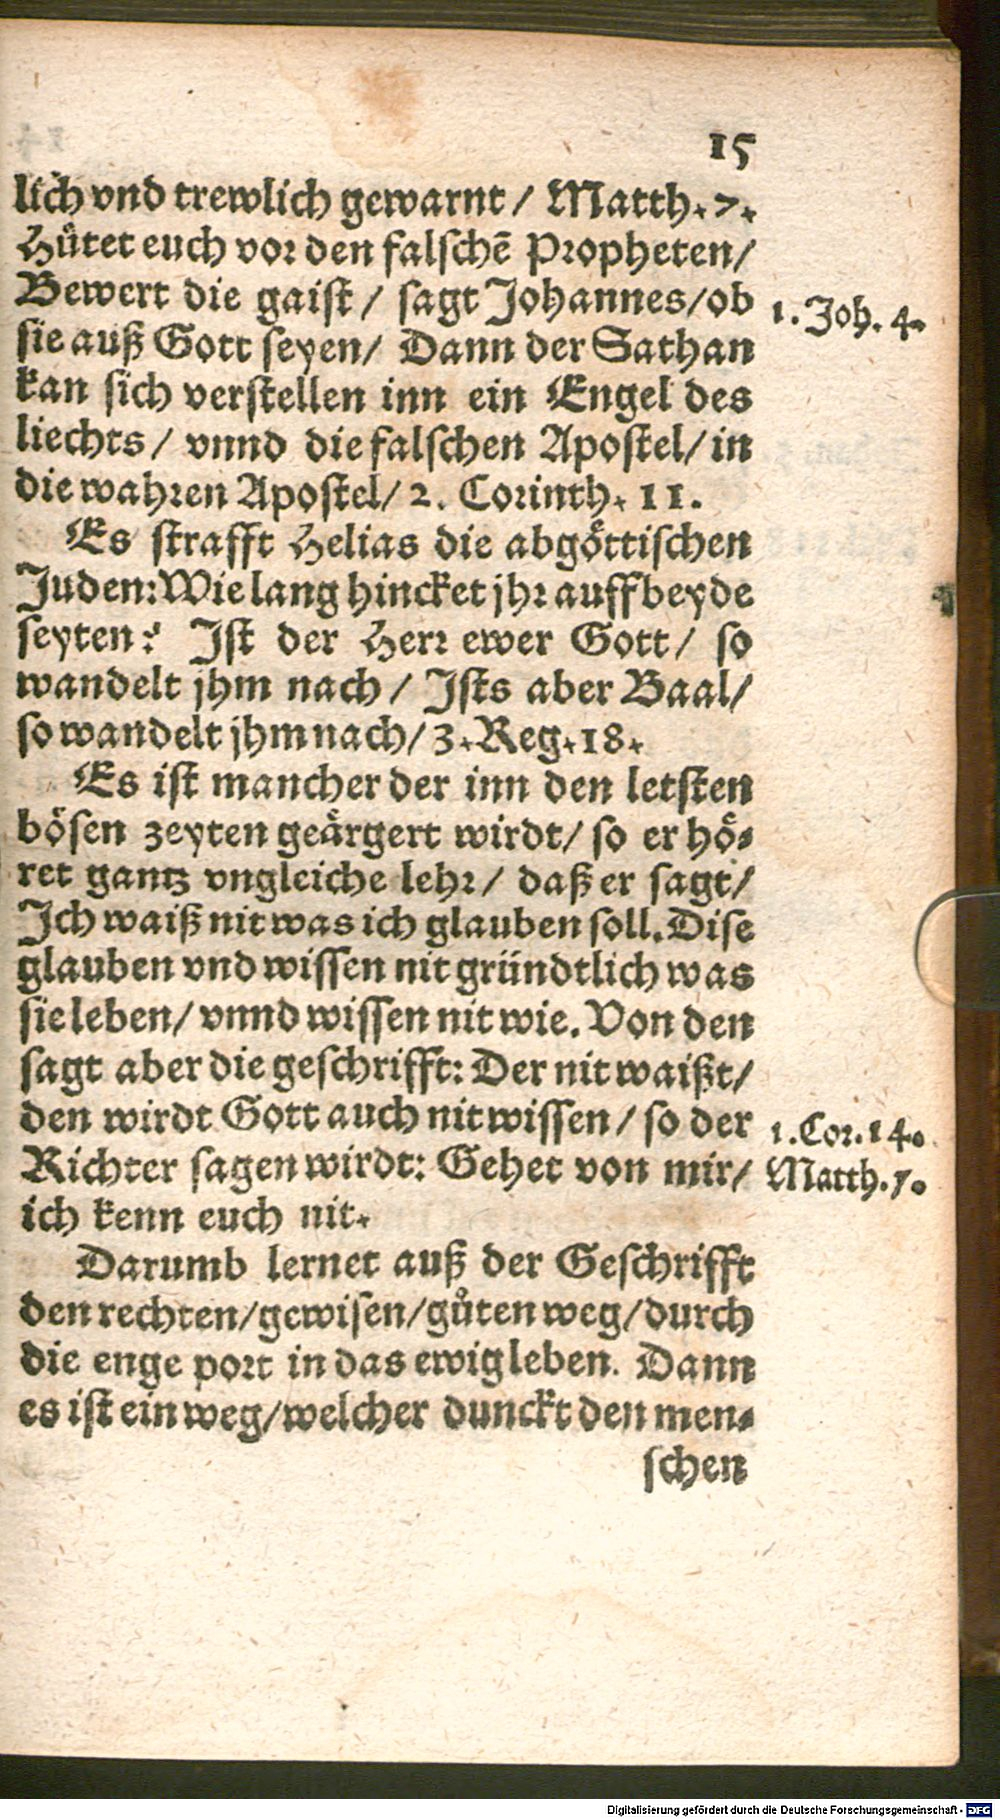 15
lich vnd trewlich gewarnt / Matth. 7.
Hütet euch vor den falschē Propheten /
Bewert die gaist / sagt Johannes / ob
1. Joh. 4.
sie auß Gott seyen / Dann der Sathan
kan sich verstellen inn ein Engel des
liechts / vnnd die falschen Apostel / in
die wahren Apostel / 2. Corinth. 11.
Es strafft Helias die abgöttischen
Juden: Wie lang hincket jhr auff beyde
seyten? Ist der Herr ewer Gott / so
wandelt jhm nach / Ists aber Baal /
so wandelt jhm nach / 3. Reg. 18.
Es ist mancher der inn den letsten
bösen zeyten geärgert wirdt / so er hö-
ret gantz vngleiche lehr / daß er sagt /
Ich waiß nit was ich glauben soll. Dise
glauben vnd wissen nit gründtlich was
sie leben / vnnd wissen nit wie. Von den
sagt aber die geschrifft: Der nit waißt /
den wirdt Gott auch nit wissen / so der
1. Cor. 14.
Richter sagen wirdt: Gehet von mir /
Matth. 7.
ich kenn euch nit.
Darumb lernet auß der Geschrifft
den rechten / gewisen / gůten weg / durch
die enge port in das ewig leben. Dann
es ist ein weg / welcher dunckt den men-
schen
Digitalisierung gefördert durch die Deutsche Forschungsgemeinschaft - DFG